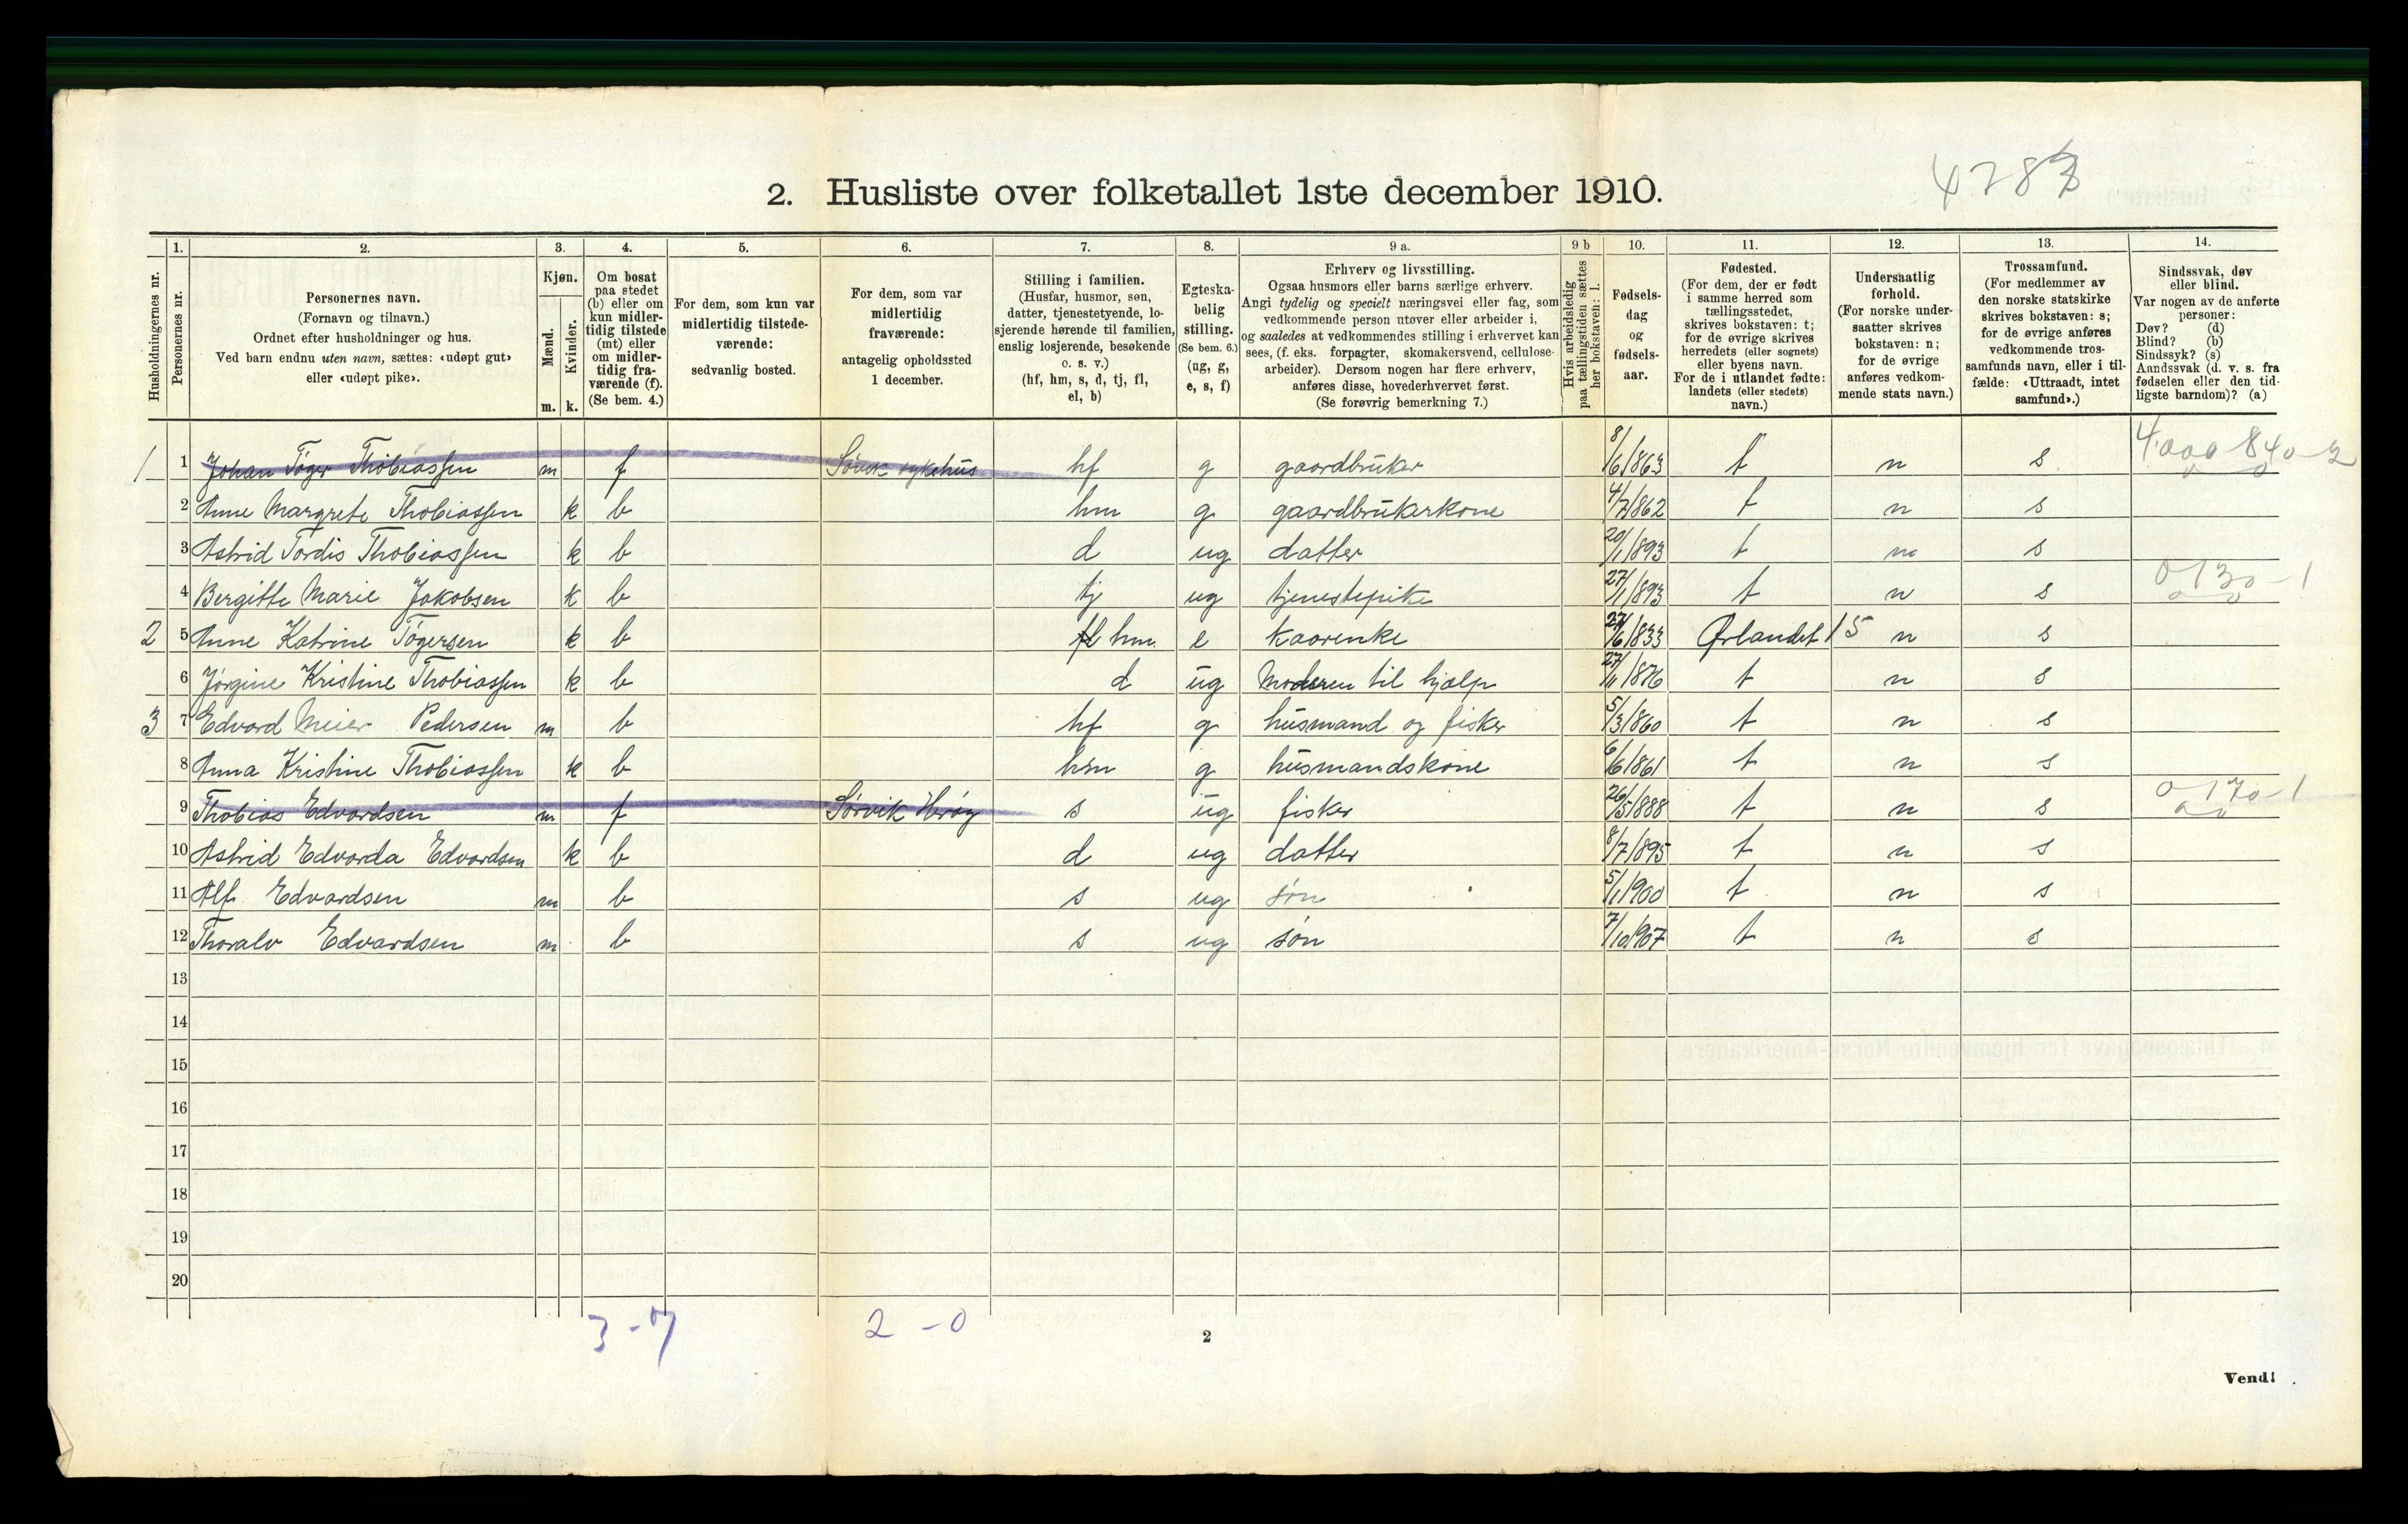 4283
2. Husliste over folketallet 1ste december 1910.
Husholdningernes nr.
1. Personernes nr.
2. Personernes navn.
(Fornavn og tilnavn.)
Ordnet efter husholdninger og hus.
Ved barn endnu uten navn, sættes: «udøpt gut»
eller «udøpt pike».
3. Kjøn.
Mænd. m.
Kvinder. k.
4. Om bosat
paa stedet
(b) eller om
kun midler-
tidig tilstede
(mt) eller
om midler-
tidig fra-
værende (f).
(Se bem. 4.)
5. For dem, som kun var
midlertidig tilstede-
værende:
sedvanlig bosted.
6. For dem, som var
midlertidig
fraværende:
antagelig opholdssted
1 december.
7. Stilling i familien.
(Husfar, husmor, søn,
datter, tjenestetyende, lo-
sjerende hørende til familien,
enslig losjerende, besøkende
o. s. v.)
(hf, hm, s, d, tj, fl,
el, b)
8. Egteska-
belig
stilling.
(Se bem. 6.)
(ug, g,
e, s, f)
9 a. Erhverv og livsstilling.
Ogsaa husmors eller barns særlige erhverv.
Angi tydelig og specielt næringsvei eller fag, som
vedkommende person utøver eller arbeider i,
og saaledes at vedkommendes stilling i erhvervet kan
sees, (f. eks. forpagter, skomakersvend, cellulose-
arbeider). Dersom nogen har flere erhverv,
anføres disse, hovederhvervet først.
(Se forøvrig bemerkning 7.)
9 b Hvis arbeidsledig
paa tællingstiden sættes
her bokstaven: l.
10. Fødsels-
dag
og
fødsels-
aar.
11. Fødested.
(For dem, der er født
i samme herred som
tællingsstedet,
skrives bokstaven: t;
for de øvrige skrives
herredets (eller sognets)
eller byens navn.
For de i utlandet fødte:
landets (eller stedets)
navn.)
12. Undersaatlig
forhold.
(For norske under-
saatter skrives
bokstaven: n;
for de øvrige
anføres vedkom-
mende stats navn.)
13. Trossamfund.
(For medlemmer av
den norske statskirke
skrives bokstaven: s;
for de øvrige anføres
vedkommende tros-
samfunds navn, eller i til-
fælde: «Uttraadt, intet
samfund».)
14. Sindssvak, døv
eller blind.
Var nogen av de anførte
personer:
Døv? (d)
Blind? (b)
Sindssyk? (s)
Aandssvak (d. v. s. fra
fødselen eller den tid-
ligste barndom)? (a)
1 1 Johan Tøger Thobiassen m f sykehus hf g gaardbruker 8/6/863 t n s 4.000-840-2
2 Anne Margrete Thobiassen k b hm g gaardbrukerkone 4/7/862 t n s
3 Astrid Tordis Thobiassen k b d ug datter 20/1/893 t n s
4 Bergitte Marie Jakobsen k b tj ug tjenestepike 27/1/893 t n s 0130-1
2 5 Anne Katrine Tøgersen k b fl hm e kaarenke 27/6/833 Ørlandet 15 n s
6 Jørgine Kristine Thobiassen k b d ug Moderen til hjælp 27/1/876 t n s
3 7 Edvard Meier Pedersen m b hf g husmand og fisker 5/3/860 t n s
8 Anna Kristine Thobiassen k b hm g husmandskone 6/6/861 t n s
9 Thobias Edvardsen m f Sørvik Herøy s ug fisker 26/5/888 t n s 0170-1
10 Astrid Edvarda Edvardsen k b d ug datter 8/7/895 t n s
11 Alf Edvardsen m b s ug søn 5/1/900 t n s
12 Thoralv Edvardsen m b s ug søn 7/10/907 t n s
13
14
15
16
17
18
19
20
3-7 2-0
2
Vend!